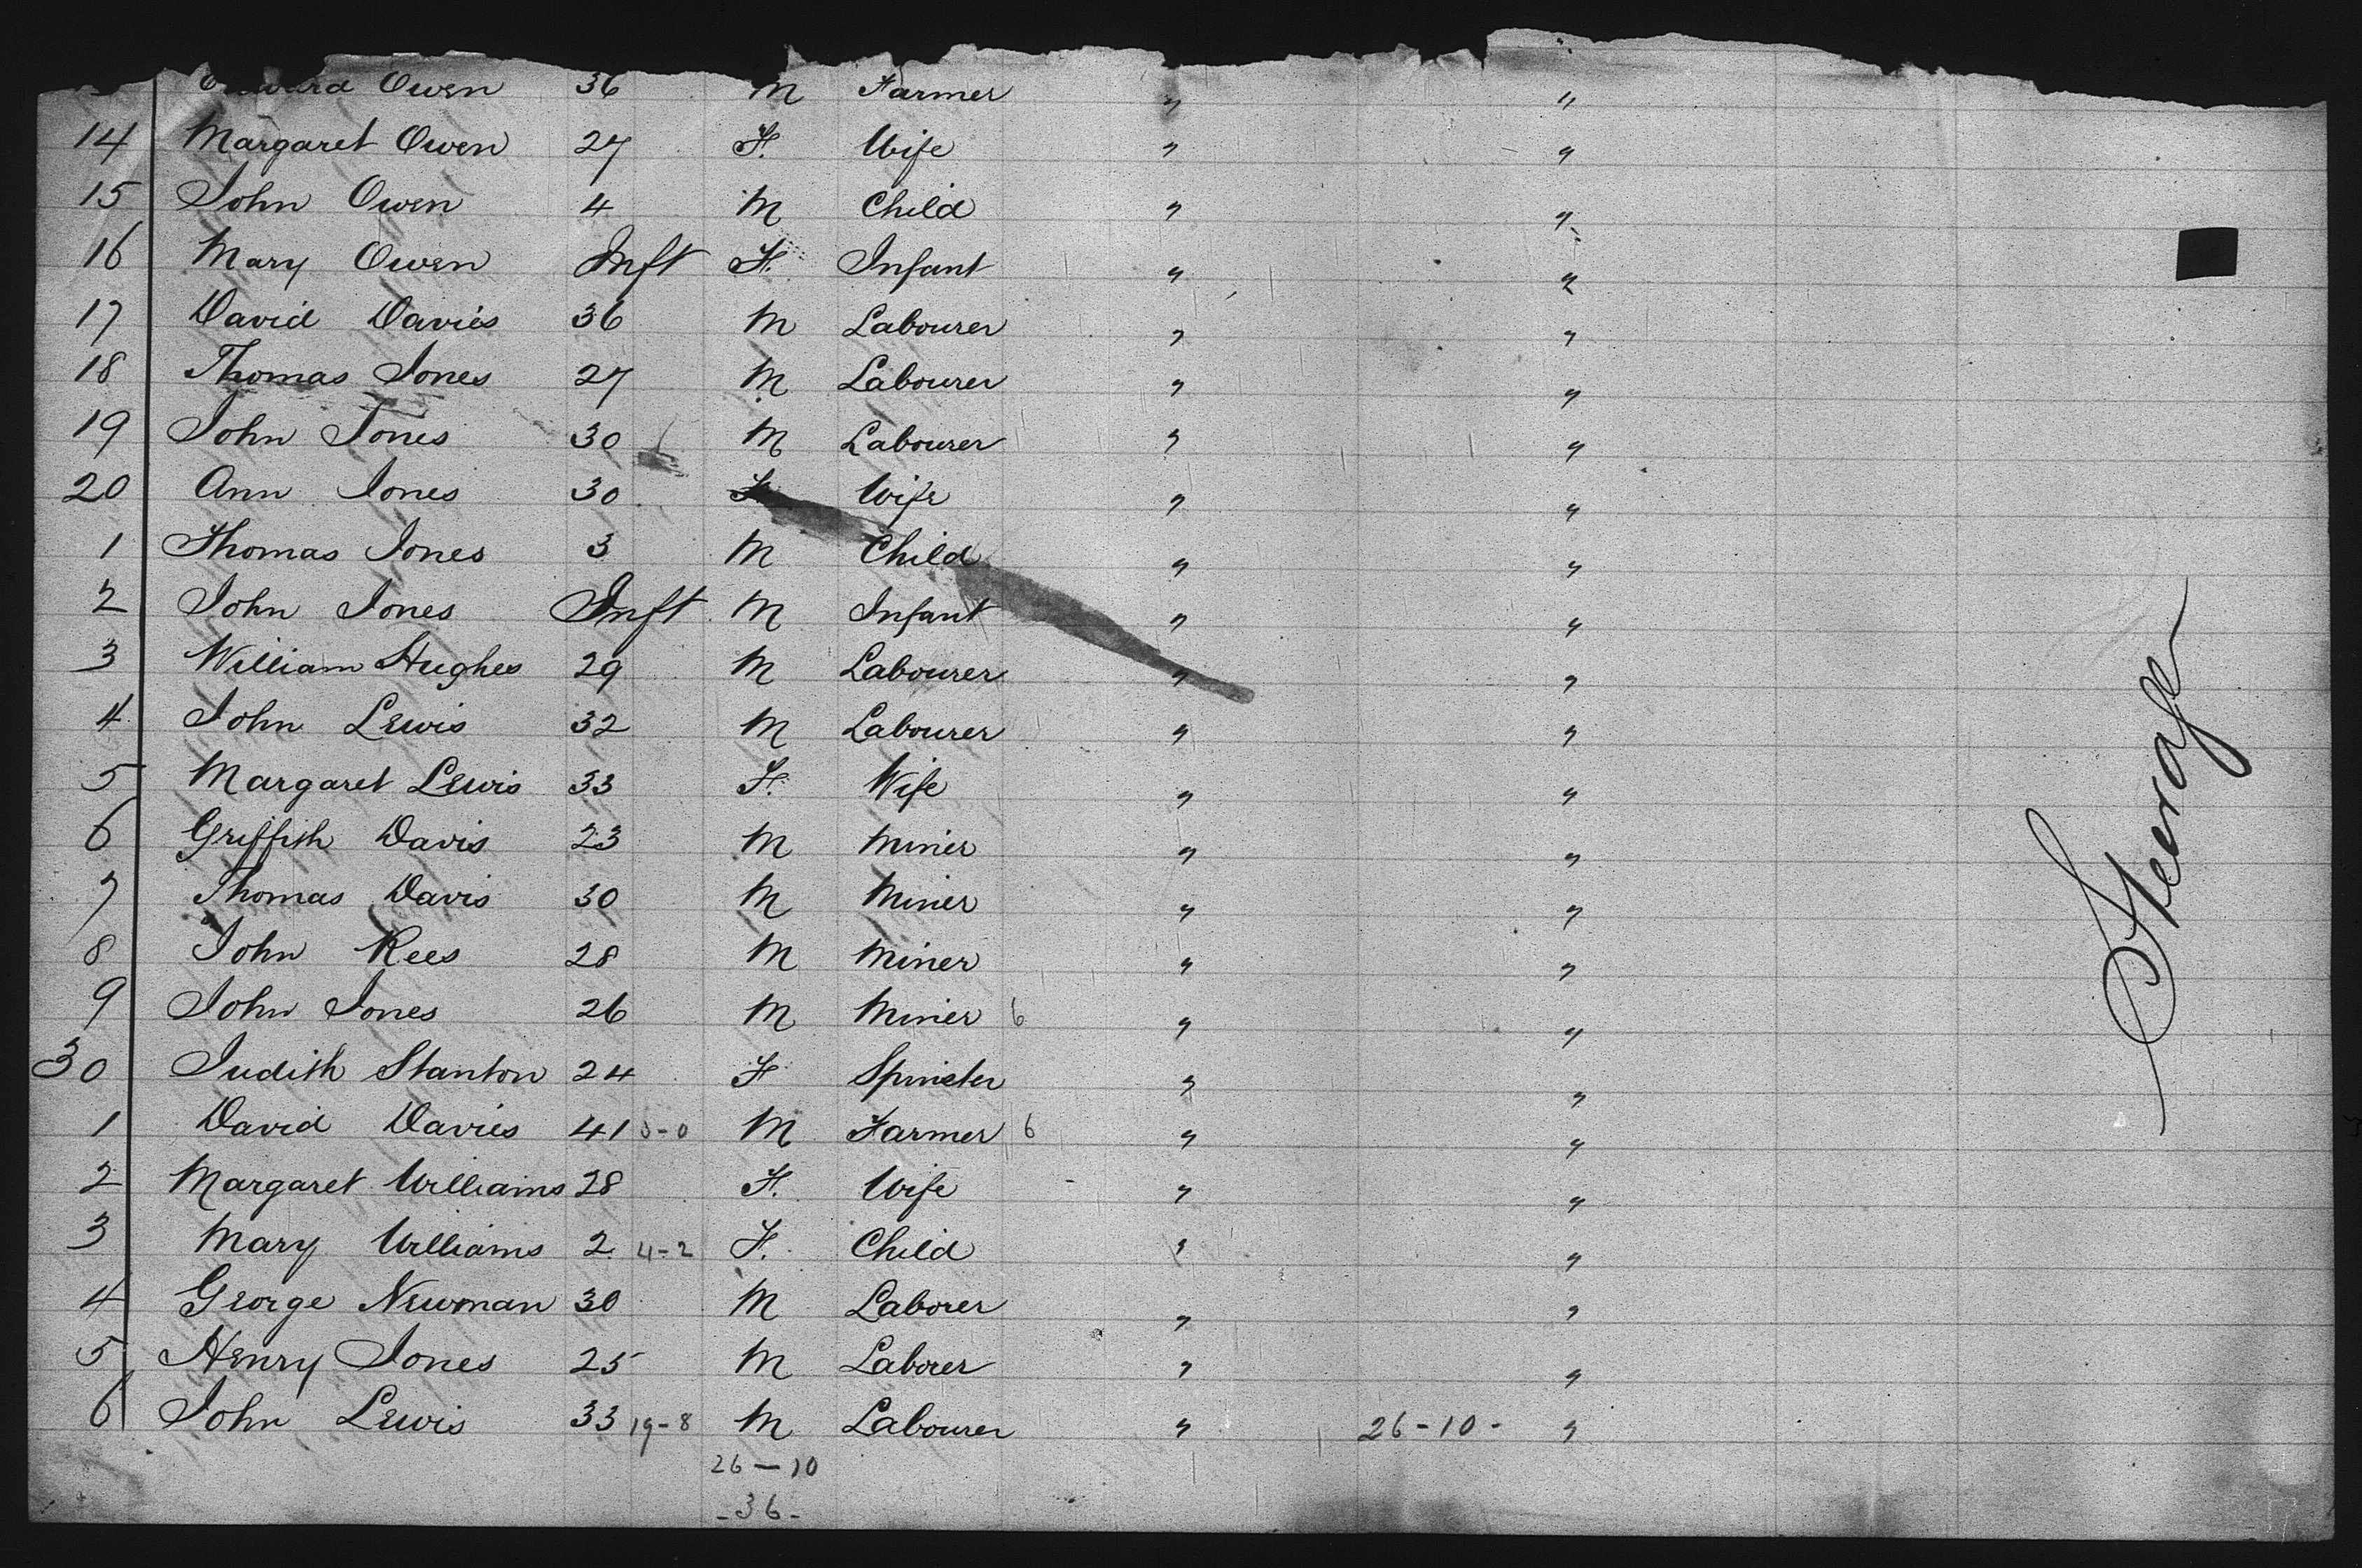 Owen 36 M Farmer " "
14 Margaret Owen 27 F. Wife " "
15 John Owen 4 M Child " "
16 Mary Owen Inft F. Infant " "
17 David Davies 36 M Labourer " "
18 Thomas Jones 27 M Labourer " "
19 John Jones 30 M Labourer " "
20 Ann Jones 30 F. Wife " "
1 Thomas Jones 3 M Child " "
2 John Jones Inft M Infant " "
3 William Hughes 29 M Labourer " "
4 John Lewis 32 M Labourer " "
5 Margaret Lewis 33 F. Wife " "
6 Griffith Davis 23 M Miner " "
7 Thomas Davis 30 M Miner " "
8 John Rees 28 M Miner " "
9 John Jones 26 M Miner 6 " "
30 Judith Stanton 24 F Spinster " "
1 David Davies 41 M Farmer 6 " "
2 Margaret Williams 28 F. Wife " "
3 Mary Williams 2 4-2 F. Child " "
4 George Newman 30 M Laborer " "
5 Henry Jones 25 M Laborer " "
6 John Lewis 33 19-8 M Labourer " 26-10- "
26-10
-36-
Steerage